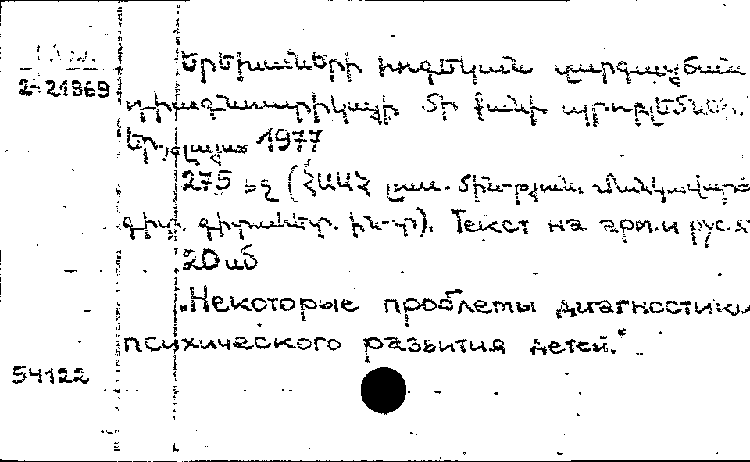 2-21969
Երեխաների հոգեկան զարգացման
դիագնոստիկայի մի քանի պրոբլեմներ.
Եր., 1977
275 էջ (ՀՍՍՀ լուս. մին-թյան. մանկավարժ.
գիտ. գիտահետ. ին-տ). Текст на арм.и рус.я
20 սմ
„Некоторые проблемы диагностики
психического развития детей.“
54122